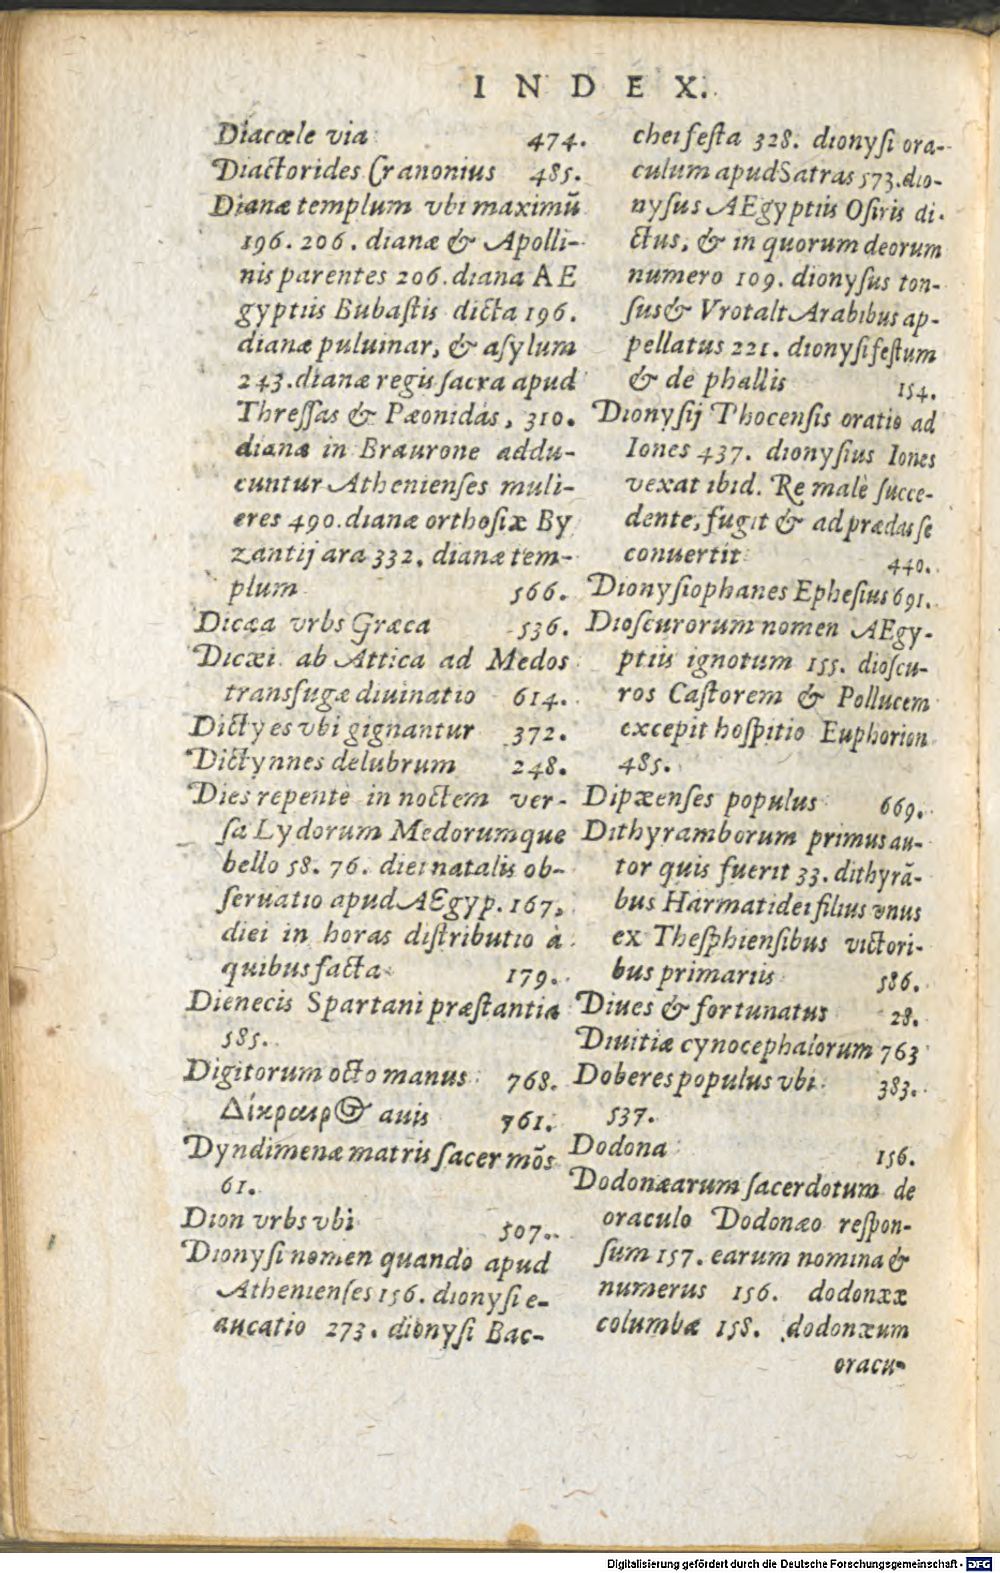 INDEX.
Diacœle via 474.
Diactorides Cranonius 485.
Dianæ templum vbi maximū
196. 206. dianæ & Apolli-
nis parentes 206. diana AE
gyptiis Bubaſtis dicta 196.
dianæ puluinar, & aſylum
243. dianæ regis ſacra apud
Threſſas & Pæonidas, 310.
dianæ in Braurone addu-
cuntur Athenienſes muli-
eres 490. dianæ orthoſiæ By
zantij ara 332. dianæ tem-
plum 566.
Dicæa vrbs Græca 536.
Dicæi ab Attica ad Medos
transfugæ diuinatio 614.
Dictyes vbi gignantur 372.
Dictynnes delubrum 248.
Dies repente in noctem ver-
ſa Lydorum Medorumque
bello 58. 76. diei natalis ob-
ſeruatio apud AEgyp. 167,
diei in horas diſtributio à
quibus facta 179.
Dienecis Spartani præſtantia
585.
Digitorum octo manus 768.
Δίκραιρος auis 761.
Dyndimenæ matris ſacer mōs
61.
Dion vrbs vbi 507.
Dionyſi nomen quando apud
Athenienſes 156. dionyſi e-
aucatio 273. dionyſi Bac-
chei feſta 328. dionyſi ora-
culum apud Satras 573. dio-
nyſus AEgyptiis Oſiris di-
ctus, & in quorum deorum
numero 109. dionyſus ton-
ſus & Vrotalt Arabibus ap-
pellatus 221. dionyſi feſtum
& de phallis 154.
Dionyſij Phocenſis oratio ad
Iones 437. dionyſius Iones
vexat ibid. Re malè ſucce-
dente, fugit & ad prædas ſe
conuertit 440.
Dionyſiophanes Epheſius 691.
Dioſcurorum nomen AEgy-
ptiis ignotum 155. dioſcu-
ros Caſtorem & Pollucem
excepit hoſpitio Euphorion
485.
Dipæenſes populus 669.
Dithyramborum primus au-
tor quis fuerit 33. dithyrā-
bus Harmatidei filius vnus
ex Theſphienſibus victori-
bus primariis 586.
Diues & fortunatus 28.
Diuitiæ cynocephalorum 763
Doberes populus vbi 383.
537.
Dodona 156.
Dodonæarum ſacerdotum de
oraculo Dodonæo reſpon-
ſum 157. earum nomina &
numerus 156. dodonææ
columbæ 158. dodonæum
oracu-
Digitalisierung gefördert durch die Deutsche Forschungsgemeinschaft - DFG